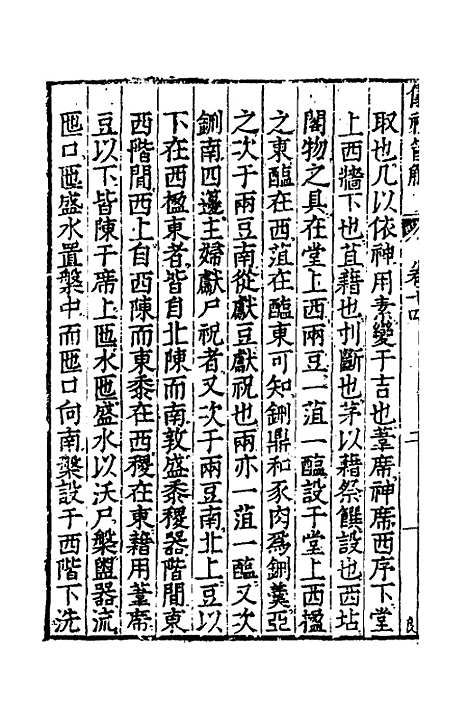 取也几以依神用素變于吉也葦席神席西序下堂
上西牆下也苴藉也刌斷也茅以藉祭饌設也西坫
閣物之具在堂上西兩豆一菹一醢設于堂上西楹
之東醢在西菹在醢東可知鉶鼎和豕肉爲鉶羹亞
之次于兩豆南從獻豆獻祝也兩亦一菹一醢又次
鉶南四籩主婦獻尸祝者又次于兩豆南北上豆以
下在西楹東者皆自北陳而南敦盛黍稷器階間東
西階間西上自西陳而東黍在西稷在東藉用葦席
豆以下皆陳于席上匜水匜盛水以沃尸槃盥器流
匜口匜盛水置槃中而匜口向南槃設于西階下洗
卷十四
二